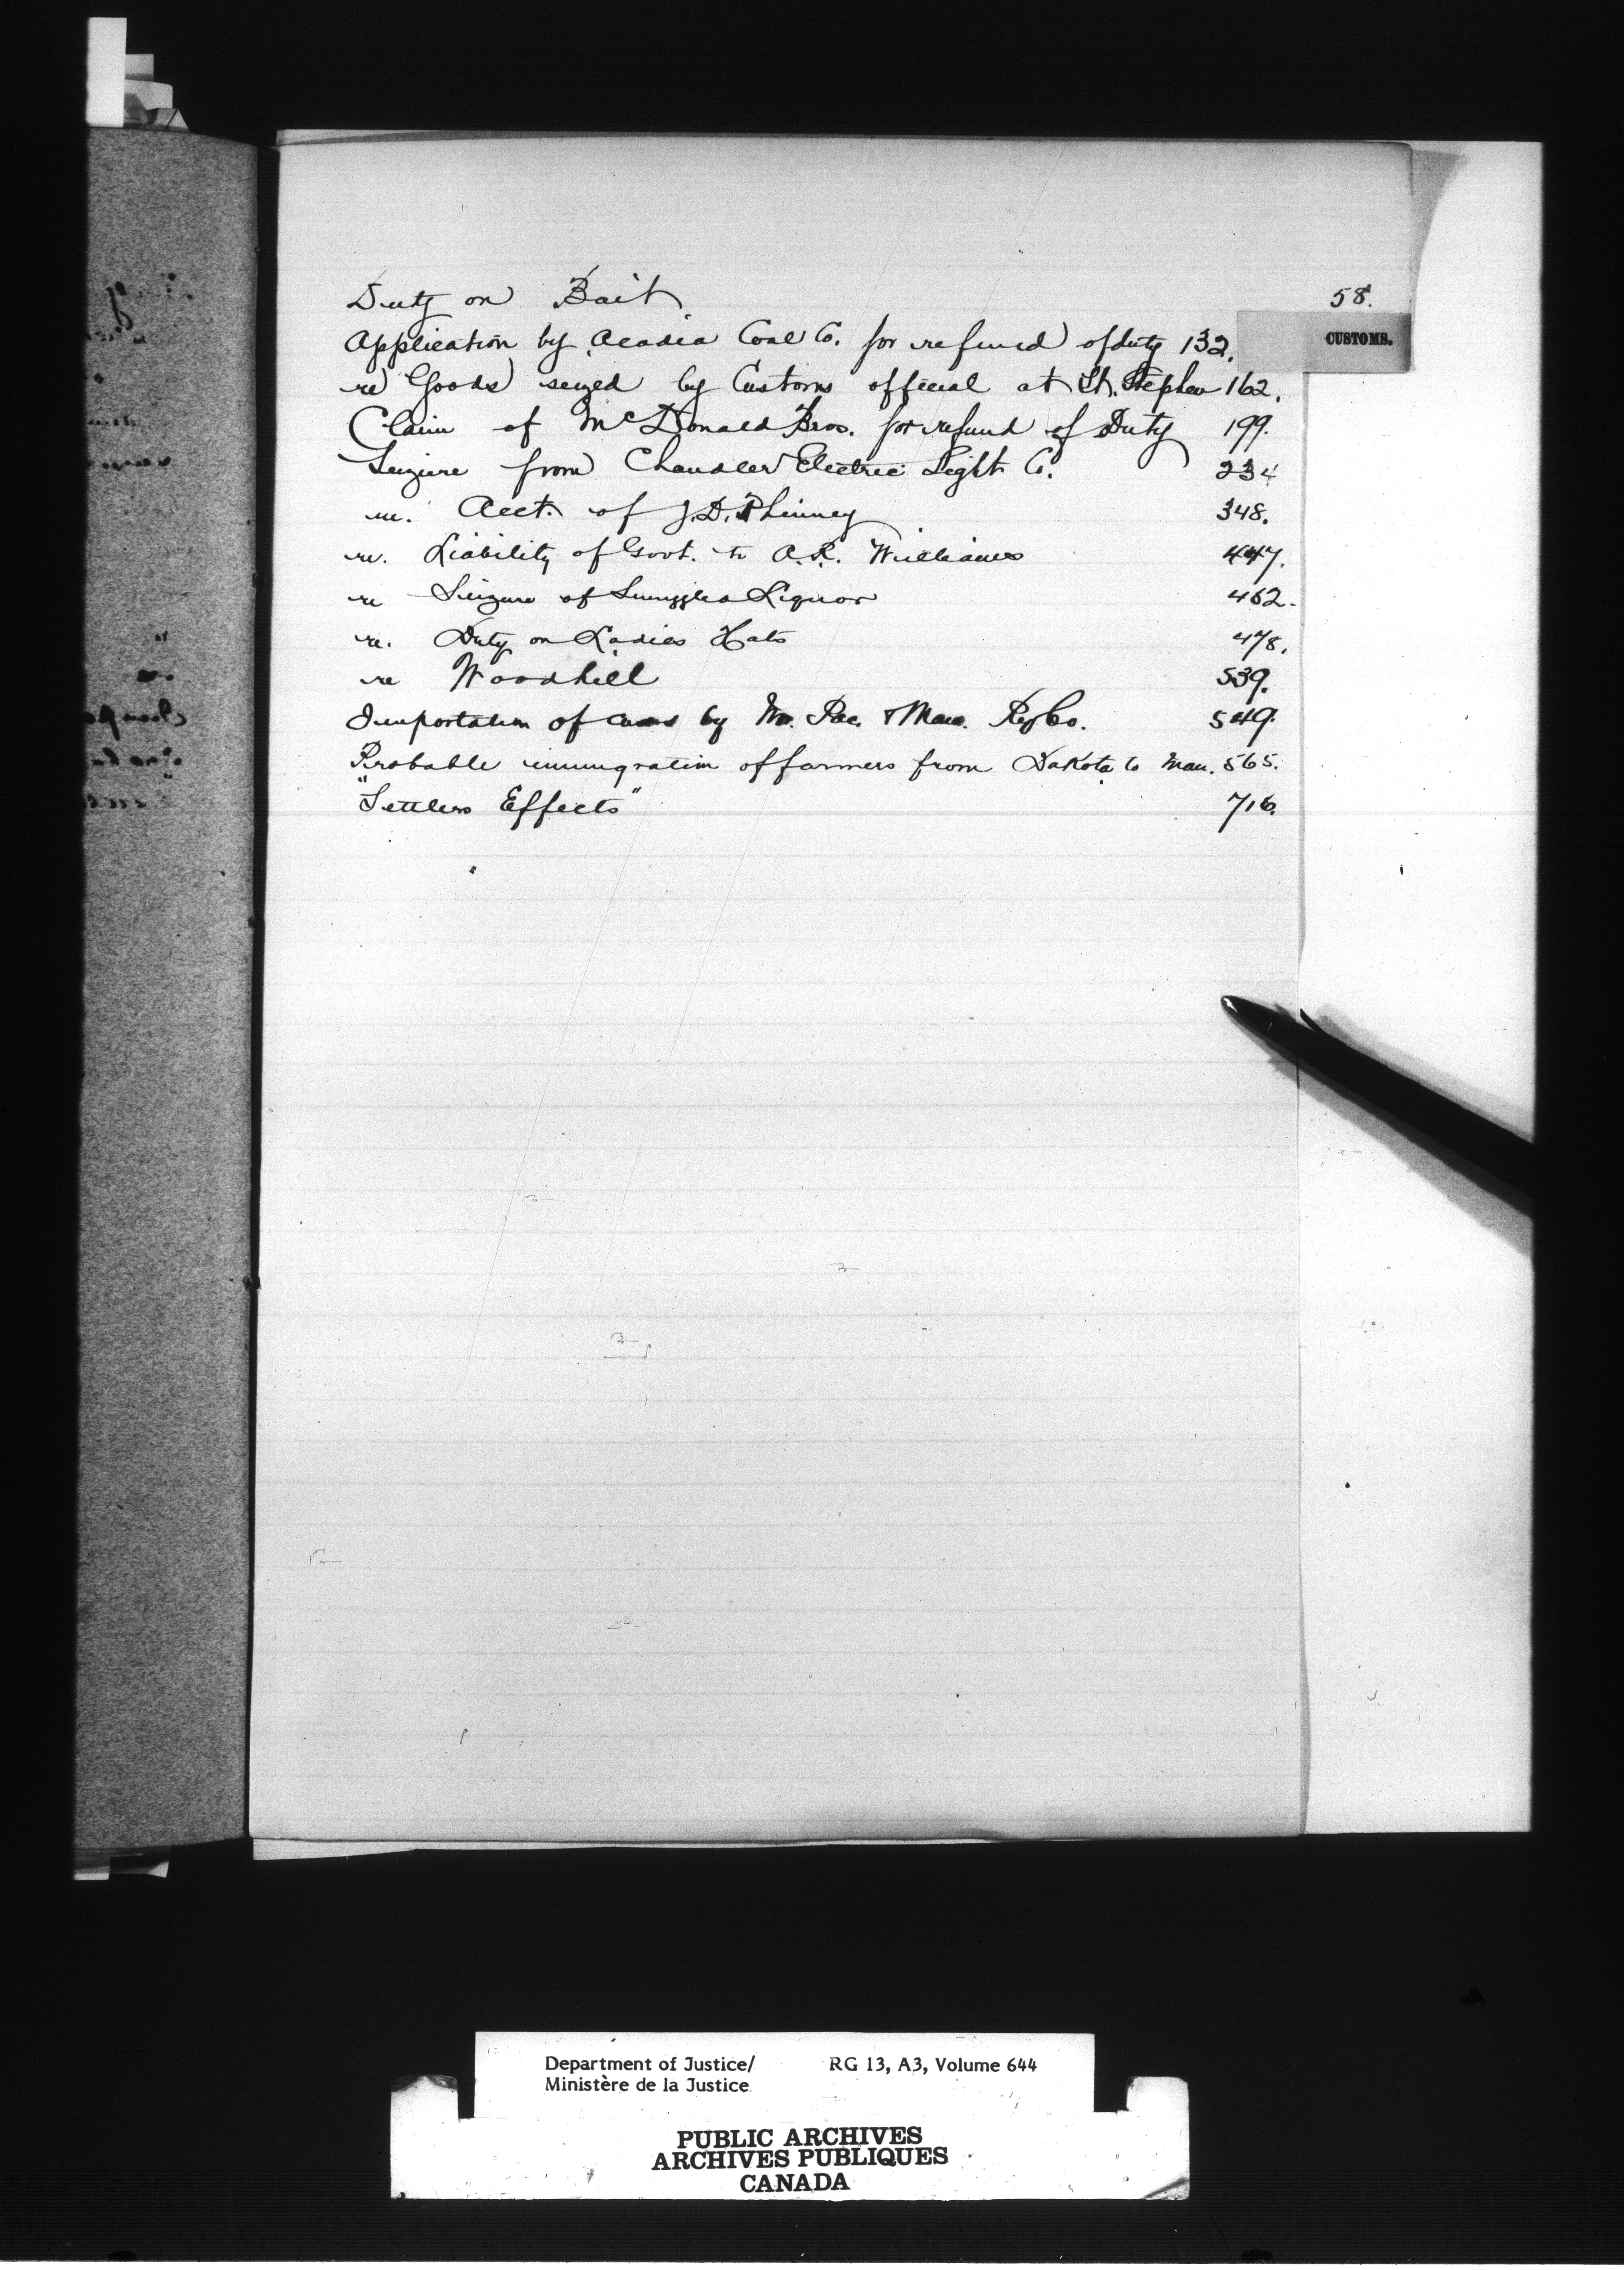 Duty on Bait 58.
Application by Acadia Coal Co. for refund of duty 132.
CUSTOMS.
re Goods seized by Customs official at St. Stephen 162.
Claim of McDonald Bros. for refund of Duty 199.
Seizure from Chandler Electric Light Co. 234
re. Acct. of J.D. Phinney 348.
re. Liability of Govt. to A.R. Williams 447.
re Seizure of Smuggled Liquor 462.
re. Duty on Ladies Hats 478.
re Woodhill 539.
Importation of cars by No. Pac. & Man. Ry Co. 549.
Probable immigration of farmers from Dakota to Man. 565.
"Settlers Effects" 716.
Department of Justice/ RG 13, A3, Volume 644
Ministère de la Justice
PUBLIC ARCHIVES
ARCHIVES PUBLIQUES
CANADA